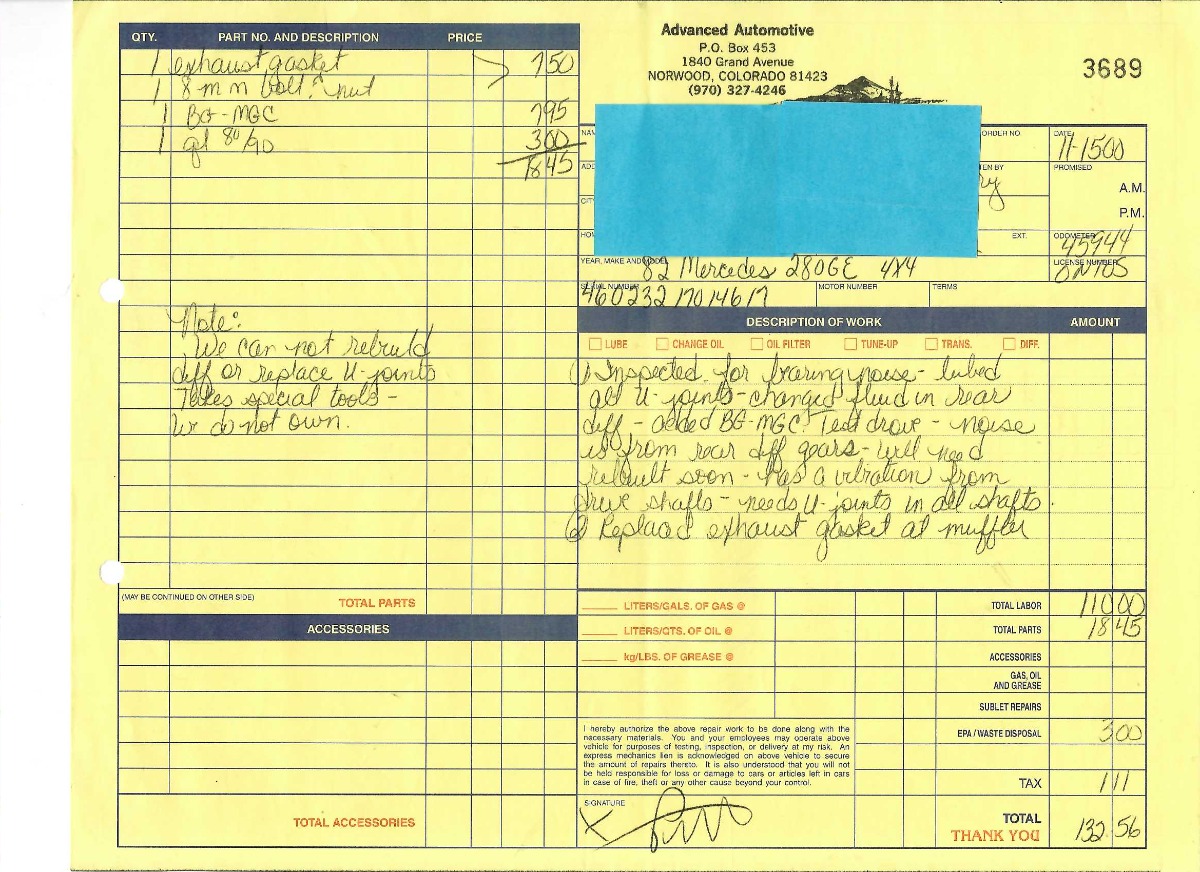 Advanced Automotive
P.O. Box 453
1840 Grand Avenue
NORWOOD, COLORADO 81423
(970) 327-4246
3689
QTY. PART NO. AND DESCRIPTION PRICE
1 exhaust gasket 7 50
1 8 mm bolt & nut
1 BG-MGC 7 95
1 qt 80/90 3 00
18 45
Note:
We can not rebuild
diff or replace U-joints
Takes special tools -
We do not own.
(MAY BE CONTINUED ON OTHER SIDE) TOTAL PARTS
ACCESSORIES
TOTAL ACCESSORIES
DATE
11-15 00
PROMISED
A.M.
P.M.
ORDER NO.
EXT.
ODOMETER
45944
YEAR, MAKE AND MODEL
82 Mercedes 280GE 4x4
LICENSE NUMBER
SERIAL NUMBER
460232 17014617
MOTOR NUMBER
TERMS
DESCRIPTION OF WORK AMOUNT
LUBE CHANGE OIL OIL FILTER TUNE-UP TRANS. DIFF.
1) Inspected for bearing noise - lubed
all U-joints - changed fluid in rear
diff - added BG-MGC. Test drove - noise
is from rear diff gears - will need
rebuilt soon - has a vibration from
drive shafts - needs U-joints in all shafts.
2) Replaced exhaust gasket at muffler
LITERS/GALS. OF GAS @
LITERS/QTS. OF OIL @
kg/LBS. OF GREASE @
TOTAL LABOR 110 00
TOTAL PARTS 18 45
ACCESSORIES
GAS, OIL
AND GREASE
SUBLET REPAIRS
EPA / WASTE DISPOSAL 3 00
TAX 1 11
TOTAL 132 56
THANK YOU
I hereby authorize the above repair work to be done along with the
necessary materials. You and your employees may operate above
vehicle for purposes of testing, inspection, or delivery at my risk. An
express mechanics lien is acknowledged on above vehicle to secure
the amount of repairs thereto. It is also understood that you will not
be held responsible for loss or damage to cars or articles left in cars
in case of fire, theft or any other cause beyond your control.
SIGNATURE
X